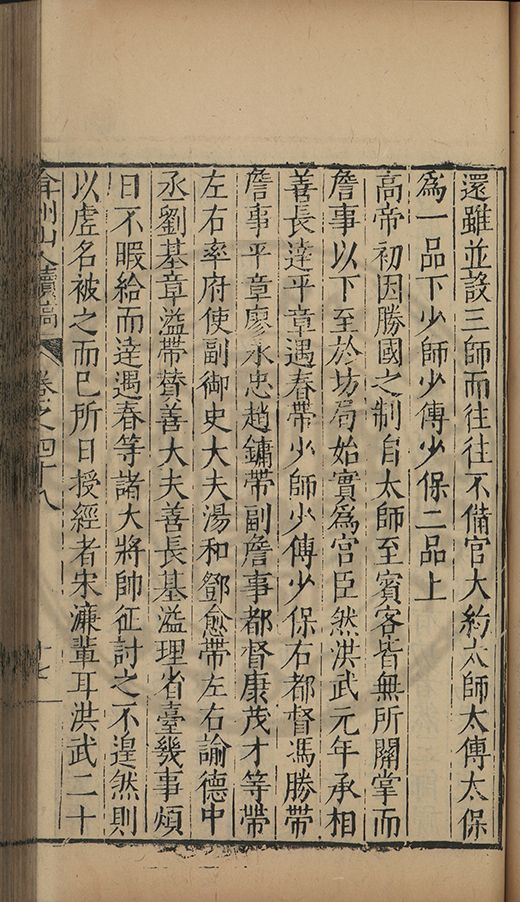 還雖並設三師而往往不備官大約太師太傅太保
為一品下少師少傅少保二品上
高帝初因勝國之制自太師至賓客皆無所關掌而
詹事以下至於坊局始實為宮臣然洪武元年承相
善長達平章遇春帶少師少傅少保右都督馮勝帶
詹事平章廖永忠趙鏞帶副詹事都督康茂才等帶
左右率府使副御史大夫湯和鄧愈帶左右諭德中
丞劉基章溢帶賛善大夫善長基溢理省臺幾事煩
日不暇給而達遇春等諸大將帥征討之不遑然則
以虛名被之而已所日授經者宋濂輩耳洪武二十
弇州山人續稿 卷之四十八 十七